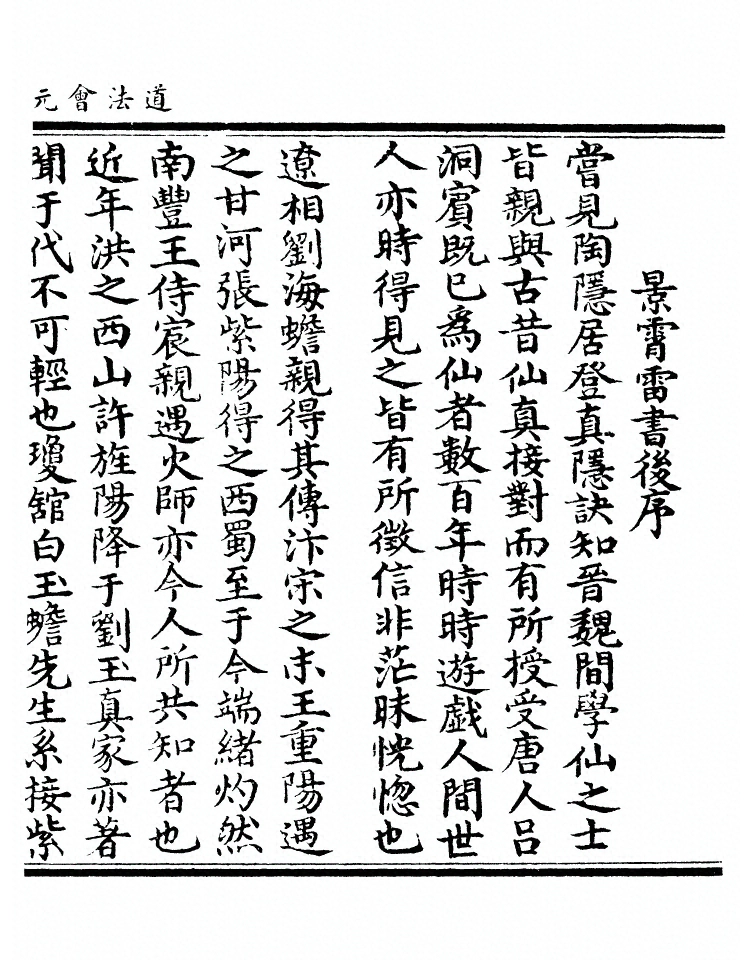 道法會元
景霄雷書後序
嘗見陶隱居登真隱訣知晉魏間學仙之士
皆親與古昔仙真接對而有所授受唐人呂
洞賓既已為仙者數百年時時遊戲人間世
人亦時得見之皆有所徵信非茫昧恍惚也
遼相劉海蟾親得其傳汴宋之末王重陽遇
之甘河張紫陽得之西蜀至于今端緒灼然
南豐王侍宸親遇火師亦今人所共知者也
近年洪之西山許旌陽降于劉玉真家亦著
聞于代不可輕也瓊舘白玉蟾先生系接紫